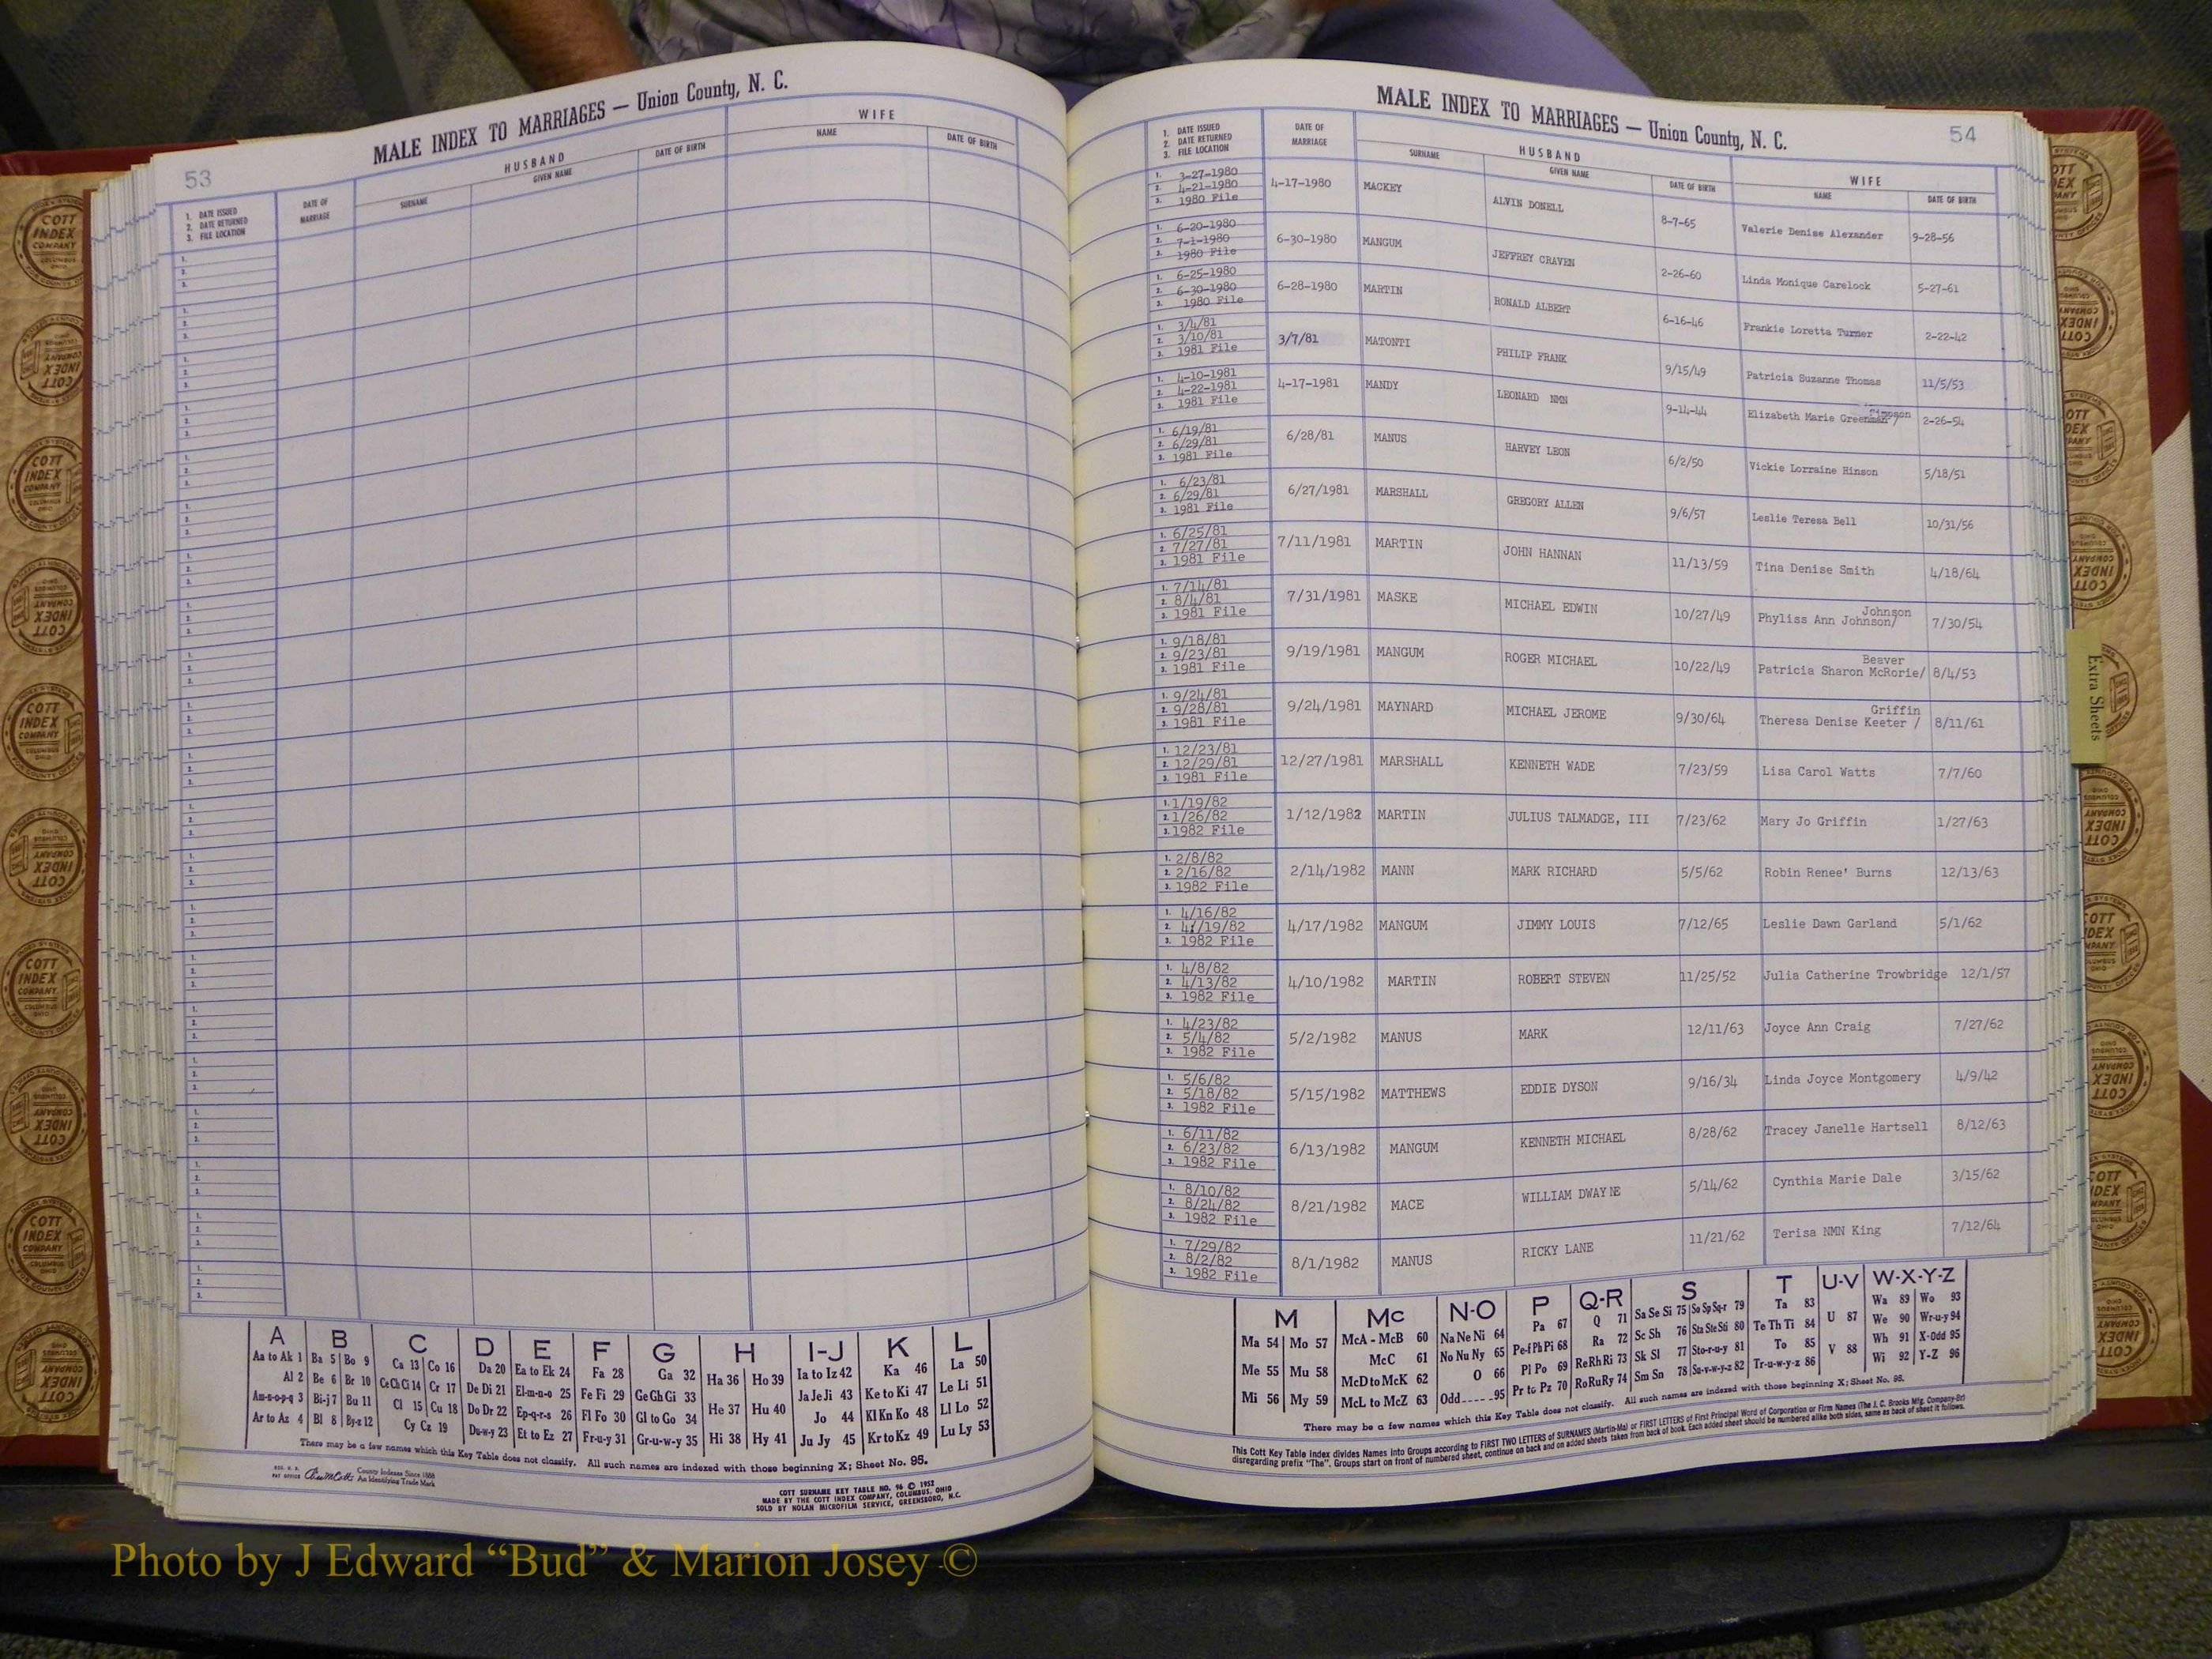 MALE INDEX TO MARRIAGES — Union County, N. C.
53
HUSBAND
WIFE
1. DATE ISSUED
2. DATE RETURNED
3. FILE LOCATION
DATE OF MARRIAGE
SURNAME
GIVEN NAME
DATE OF BIRTH
NAME
DATE OF BIRTH
A
B
C
D
E
F
G
H
I-J
K
L
Aa to Ak 1 Ba 5 Bo 9 Ca 13 Co 16 Da 20 Ea to Ek 24 Fa 28 Ga 32 Ha 36 Ho 39 Ia to Iz 42 Ka 46 La 50
Al 2 Be 6 Br 10 Ce Ch Ci 14 Cr 17 De Di 21 El-m-n-o 25 Fe Fi 29 Ge Gh Gi 33 He 37 Hu 40 Ja Je Ji 43 Ke to Ki 47 Le Li 51
Am-n-o-p-q 3 Bi-j 7 Bu 11 Cl 15 Cu 18 Do Dr 22 Ep-q-r-s 26 Fl Fo 30 Gl to Go 34 Jo 44 Kl Kn Ko 48 Ll Lo 52
Ar to Az 4 Bl 8 By-z 12 Cy Cz 19 Du-w-y 23 Et to Ez 27 Fr-u-y 31 Gr-u-w-y 35 Hi 38 Hy 41 Ju Jy 45 Kr to Kz 49 Lu Ly 53
There may be a few names which this Key Table does not classify. All such names are indexed with those beginning X; Sheet No. 95.
County Indexes Since 1888
An Identifying Trade Mark
COTT SURNAME KEY TABLE NO. 96 © 1952
MADE BY THE COTT INDEX COMPANY, COLUMBUS, OHIO
SOLD BY NOLAN MICROFILM SERVICE, GREENSBORO, N.C.
MALE INDEX TO MARRIAGES — Union County, N. C.
54
1. DATE ISSUED
2. DATE RETURNED
3. FILE LOCATION
DATE OF MARRIAGE
HUSBAND
SURNAME
GIVEN NAME
DATE OF BIRTH
WIFE
NAME
DATE OF BIRTH
1. 3-27-1980
2. 4-21-1980
3. 1980 File
4-17-1980 MACKEY ALVIN DONELL 8-7-65 Valerie Denise Alexander 9-28-56
1. 6-20-1980
2. 7-1-1980
3. 1980 File
6-30-1980 MANGUM JEFFREY CRAVEN 2-26-60 Linda Monique Carelock 5-27-61
1. 6-25-1980
2. 6-30-1980
3. 1980 File
6-28-1980 MARTIN RONALD ALBERT 6-16-46 Frankie Loretta Turner 2-22-42
1. 3/4/81
2. 3/10/81
3. 1981 File
3/7/81 MATONTI PHILIP FRANK 9/15/49 Patricia Suzanne Thomas 11/5/53
1. 4-10-1981
2. 4-22-1981
3. 1981 File
4-17-1981 MANDY LEONARD NMN 9-14-44 Elizabeth Marie Greenman/ Simpson 2-26-54
1. 6/19/81
2. 6/29/81
3. 1981 File
6/28/81 MANUS HARVEY LEON 6/2/50 Vickie Lorraine Hinson 5/18/51
1. 6/23/81
2. 6/29/81
3. 1981 File
6/27/1981 MARSHALL GREGORY ALLEN 9/6/57 Leslie Teresa Bell 10/31/56
1. 6/25/81
2. 7/27/81
3. 1981 File
7/11/1981 MARTIN JOHN HANNAN 11/13/59 Tina Denise Smith 4/18/64
1. 7/14/81
2. 8/4/81
3. 1981 File
7/31/1981 MASKE MICHAEL EDWIN 10/27/49 Phyliss Ann Johnson/ Johnson 7/30/54
1. 9/18/81
2. 9/23/81
3. 1981 File
9/19/1981 MANGUM ROGER MICHAEL 10/22/49 Patricia Sharon McRorie/ Beaver 8/4/53
1. 9/24/81
2. 9/28/81
3. 1981 File
9/24/1981 MAYNARD MICHAEL JEROME 9/30/64 Theresa Denise Keeter / Griffin 8/11/61
1. 12/23/81
2. 12/29/81
3. 1981 File
12/27/1981 MARSHALL KENNETH WADE 7/23/59 Lisa Carol Watts 7/7/60
1. 1/19/82
2. 1/26/82
3. 1982 File
1/12/1982 MARTIN JULIUS TALMADGE, III 7/23/62 Mary Jo Griffin 1/27/63
1. 2/8/82
2. 2/16/82
3. 1982 File
2/14/1982 MANN MARK RICHARD 5/5/62 Robin Renee' Burns 12/13/63
1. 4/16/82
2. 4/19/82
3. 1982 File
4/17/1982 MANGUM JIMMY LOUIS 7/12/65 Leslie Dawn Garland 5/1/62
1. 4/8/82
2. 4/13/82
3. 1982 File
4/10/1982 MARTIN ROBERT STEVEN 11/25/52 Julia Catherine Trowbridge 12/1/57
1. 4/23/82
2. 5/4/82
3. 1982 File
5/2/1982 MANUS MARK 12/11/63 Joyce Ann Craig 7/27/62
1. 5/6/82
2. 5/18/82
3. 1982 File
5/15/1982 MATTHEWS EDDIE DYSON 9/16/34 Linda Joyce Montgomery 4/9/42
1. 6/11/82
2. 6/23/82
3. 1982 File
6/13/1982 MANGUM KENNETH MICHAEL 8/28/62 Tracey Janelle Hartsell 8/12/63
1. 8/10/82
2. 8/24/82
3. 1982 File
8/21/1982 MACE WILLIAM DWAYNE 5/14/62 Cynthia Marie Dale 3/15/62
1. 7/29/82
2. 8/2/82
3. 1982 File
8/1/1982 MANUS RICKY LANE 11/21/62 Terisa NMN King 7/12/64
M
Mc
N-O
P
Q-R
S
T
U-V
W-X-Y-Z
Ma 54 Mo 57 McA - McB 60 Na Ne Ni 64 Pa 67 Q 71 Sa Se Si 75 So Sp Sq-r 79 Ta 83 U 87 Wa 89 Wo 93
Me 55 Mu 58 McC 61 No Nu Ny 65 Pe-f Ph Pi 68 Ra 72 Sc Sh 76 Sta Ste Sti 80 Te Th Ti 84 V 88 We 90 Wr-u-y 94
McD to McK 62 O 66 Pl Po 69 Re Rh Ri 73 Sk Sl 77 Sto-r-u-y 81 To 85 Wh 91 X-Odd 95
Mi 56 My 59 McL to McZ 63 Odd 95 Pr to Pz 70 Ro Ru Ry 74 Sm Sn 78 Su-v-w-y-z 82 Tr-u-w-y-z 86 Wi 92 Y-Z 96
There may be a few names which this Key Table does not classify. All such names are indexed with those beginning X; Sheet No. 95.
This Cott Key Table Index divides Names into Groups according to FIRST TWO LETTERS of SURNAMES (Martin-Ma) or FIRST LETTERS of First Principal Word of Corporation or Firm Names (The J. C. Brooks Mfg. Company-Br)
disregarding prefix "The". Groups start on front of numbered sheet, continue on back and on added sheets taken from back of book. Each added sheet should be numbered alike both sides, same as back of sheet it follows.
Extra Sheets
COTT INDEX COMPANY
COLUMBUS OHIO
Photo by J Edward “Bud” & Marion Josey ©